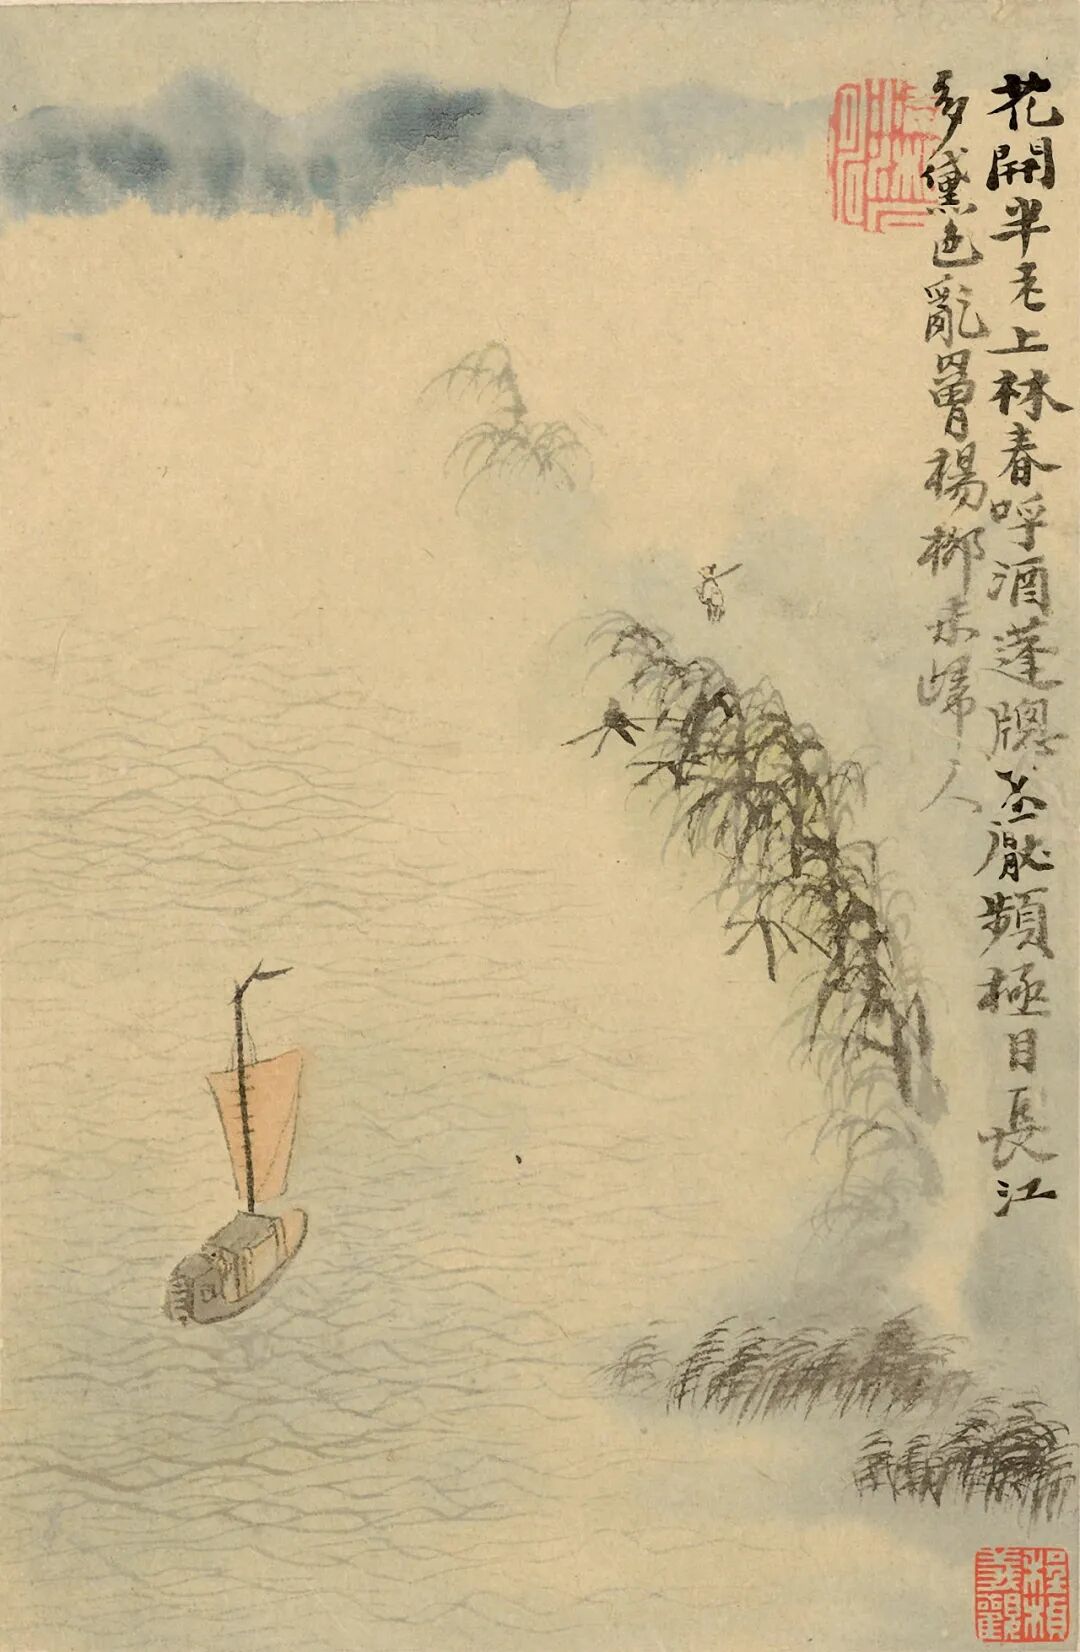 花開半老上林春呼酒蓬牕不厭頻極目長江
多黛色亂楊柳未歸人
程楨義觀